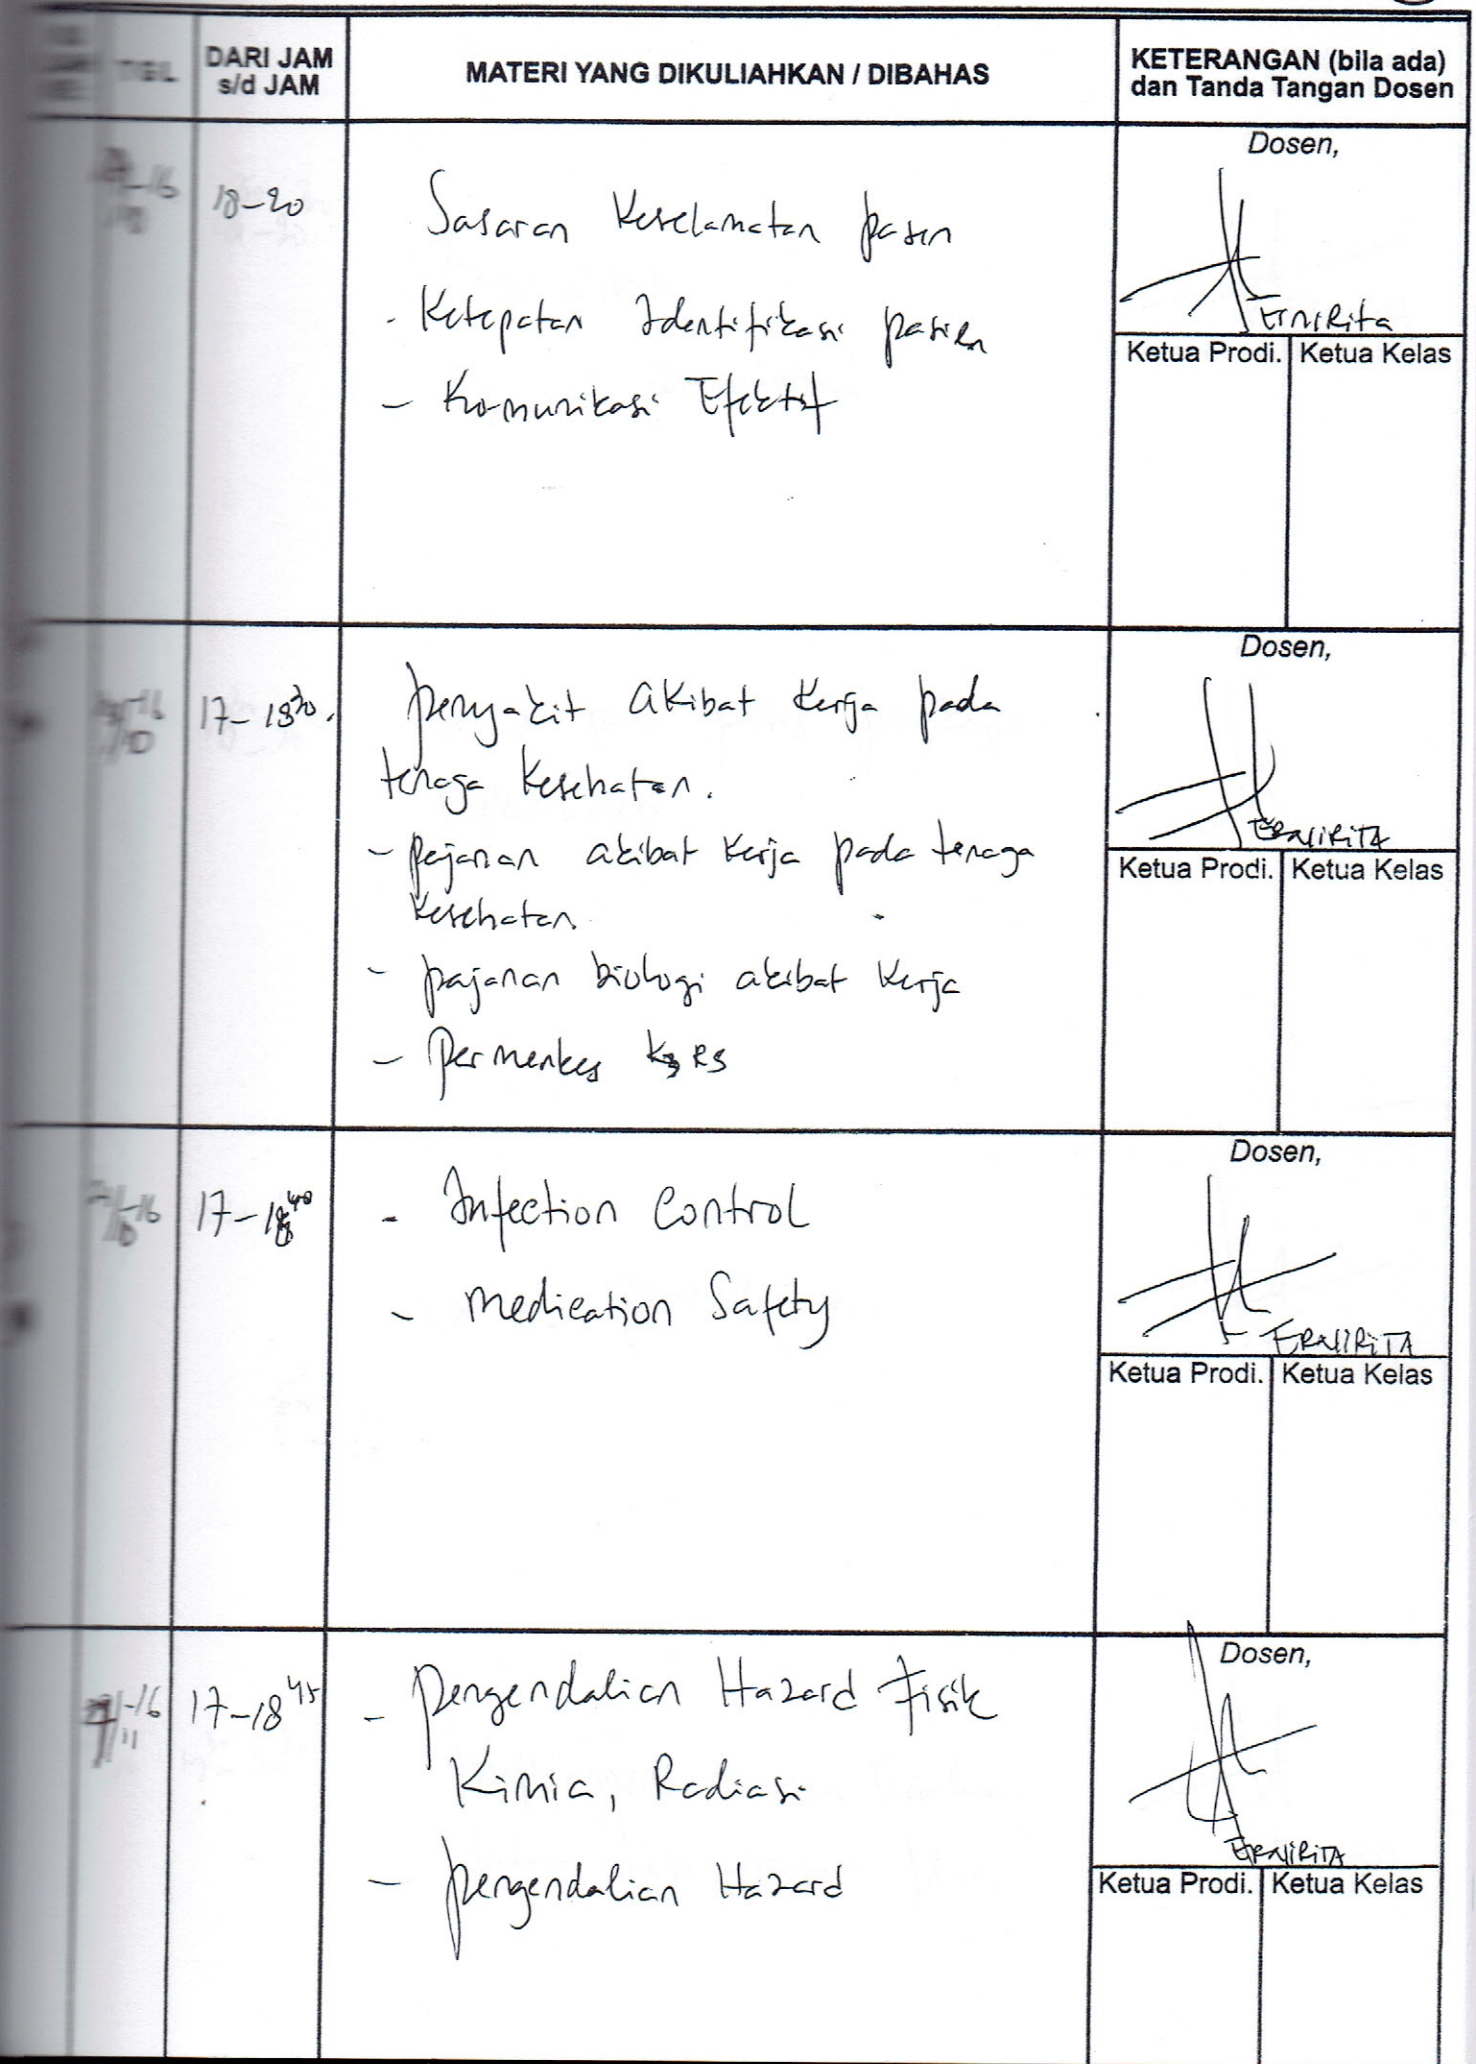 TGL
DARI JAM
s/d JAM
MATERI YANG DIKULIAHKAN / DIBAHAS
KETERANGAN (bila ada)
dan Tanda Tangan Dosen
18-20
Sasaran Keselamatan pasin
- Ketepatan Identifikasi pasien
- Komunikasi Efektif
Dosen,
Ernirita
Ketua Prodi.
Ketua Kelas
17-18³⁰.
penyakit akibat kerja pada
tenaga kesehatan.
- pajanan akibat kerja pada tenaga
kesehatan.
- pajanan biologi akibat kerja
- Permenkes K3 RS
Dosen,
ERNIRITA
Ketua Prodi.
Ketua Kelas
17-18⁴⁰
- Infection Control
- medication Safety
Dosen,
ERNIRITA
Ketua Prodi.
Ketua Kelas
17-18⁴⁵
- pengendalian Hazard Fisik
Kimia, Radiasi
- pengendalian Hazard
Dosen,
ERNIRITA
Ketua Prodi.
Ketua Kelas